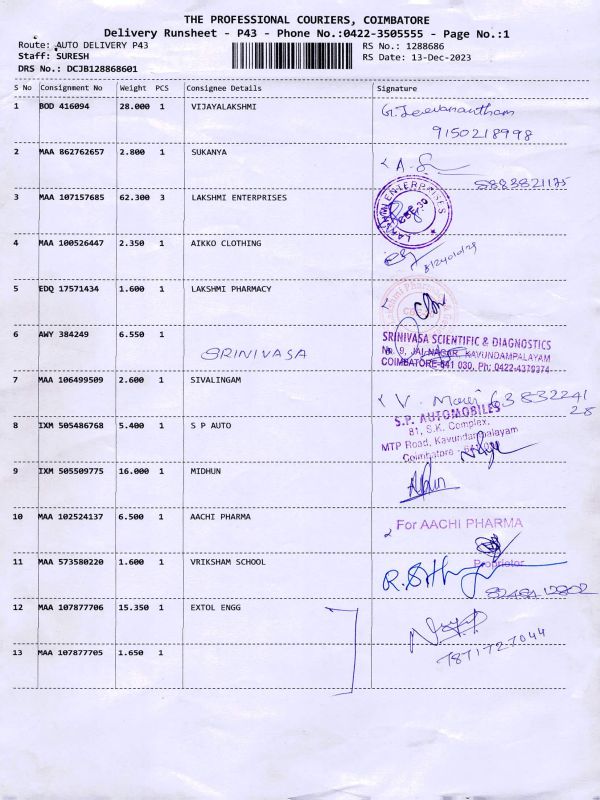 THE PROFESSIONAL COURIERS, COIMBATORE
Delivery Runsheet - P43 - Phone No.:0422-3505555 - Page No.:1
Route: AUTO DELIVERY P43 RS No.: 1288686
Staff: SURESH RS Date: 13-Dec-2023
DRS No.: DCJB128868601
S No Consignment No Weight PCS Consignee Details Signature
1 BOD 416094 28.000 1 VIJAYALAKSHMI G. Jeevanantham
9150218998
2 MAA 862762657 2.800 1 SUKANYA
3 MAA 107157685 62.300 3 LAKSHMI ENTERPRISES LAKSHMI ENTERPRISES
4 MAA 100526447 2.350 1 AIKKO CLOTHING
5 EDQ 17571434 1.600 1 LAKSHMI PHARMACY
6 AWY 384249 6.550 1 SRINIVASA SRINIVASA SCIENTIFIC & DIAGNOSTICS
No. 9, JAI NAGAR, KAVUNDAMPALAYAM
COIMBATORE-641 030, Ph: 0422-4370374
7 MAA 106499509 2.600 1 SIVALINGAM
8 IXM 505486768 5.400 1 S P AUTO S.P. AUTOMOBILES
81, S.K. Complex,
MTP Road, Kavundampalayam
Coimbatore
9 IXM 505509775 16.000 1 MIDHUN
10 MAA 102524137 6.500 1 AACHI PHARMA For AACHI PHARMA
Proprietor
11 MAA 573580220 1.600 1 VRIKSHAM SCHOOL
12 MAA 107877706 15.350 1 EXTOL ENGG
7871727044
13 MAA 107877705 1.650 1